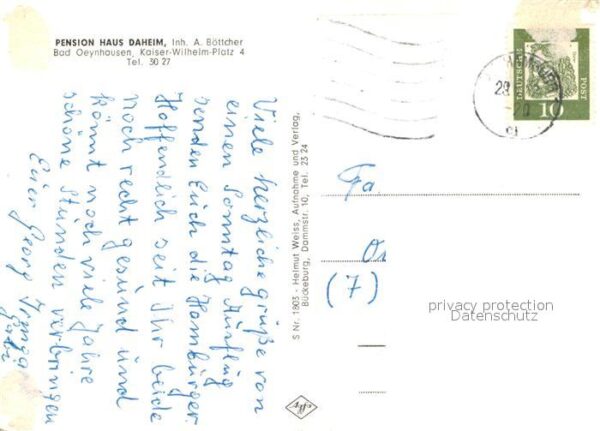 PENSION HAUS DAHEIM, Inh. A. Böttcher
Bad Oeynhausen, Kaiser-Wilhelm-Platz 4
Tel. 30 27
Viele herzliche Grüße von
einen Sonntag Ausflug
senden Euch die Hamburger
Hoffendlich seit Ihr beide
noch recht gesund und
könnt noch viele Jahre
schöne Stunden verbringen
Euer Georg
S Nr. 1803 - Helmut Weiss, Aufnahme und Verlag,
Bückeburg, Dammstr. 10, Tel. 23 24
DEUTSCHE
POST
10
Fa.
(7)
privacy protection
Datenschutz